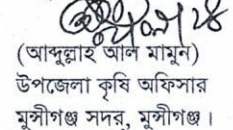 (আব্দুল্লাহ আল মামুন)
উপজেলা কৃষি অফিসার
মুন্সীগঞ্জ সদর, মুন্সীগঞ্জ।